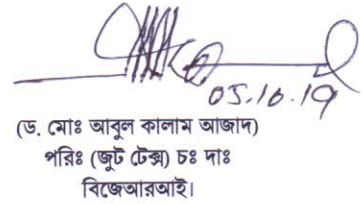 05.10.19
(ড. মোঃ আবুল কালাম আজাদ)
পরিঃ (জুট টেক্স) চঃ দাঃ
বিজেআরআই।